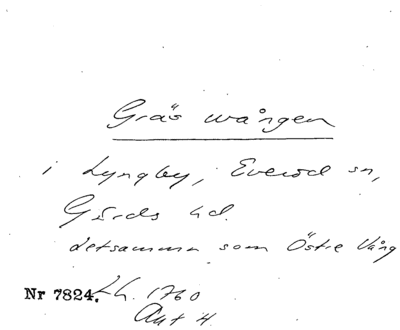 Gräs wången
i Lyngby, Everöd sn,
Gärds hd.
detsamma som Östre Vång
Nr 7824. Lh. 1760
Akt 4